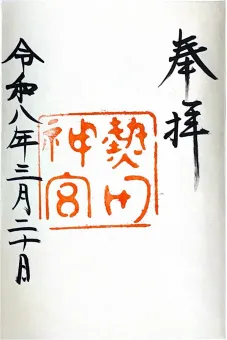 奉拝
熱田
神宮
令和八年三月二十日